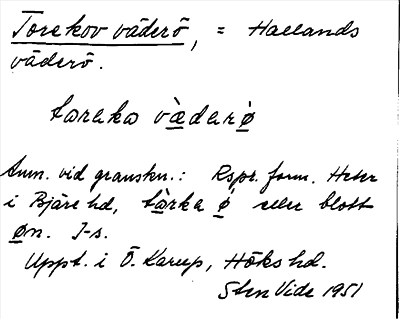 Torekov väderö, = Hallands
väderö.
tареka vàderǿ
Anm. vid granskn.: Rspr. form. Heter
i Bjäre hd, tàrka ǿ eller blott
øn. J-s.
Uppt. i Ö. Karup, Höks hd.
Sten Vide 1951